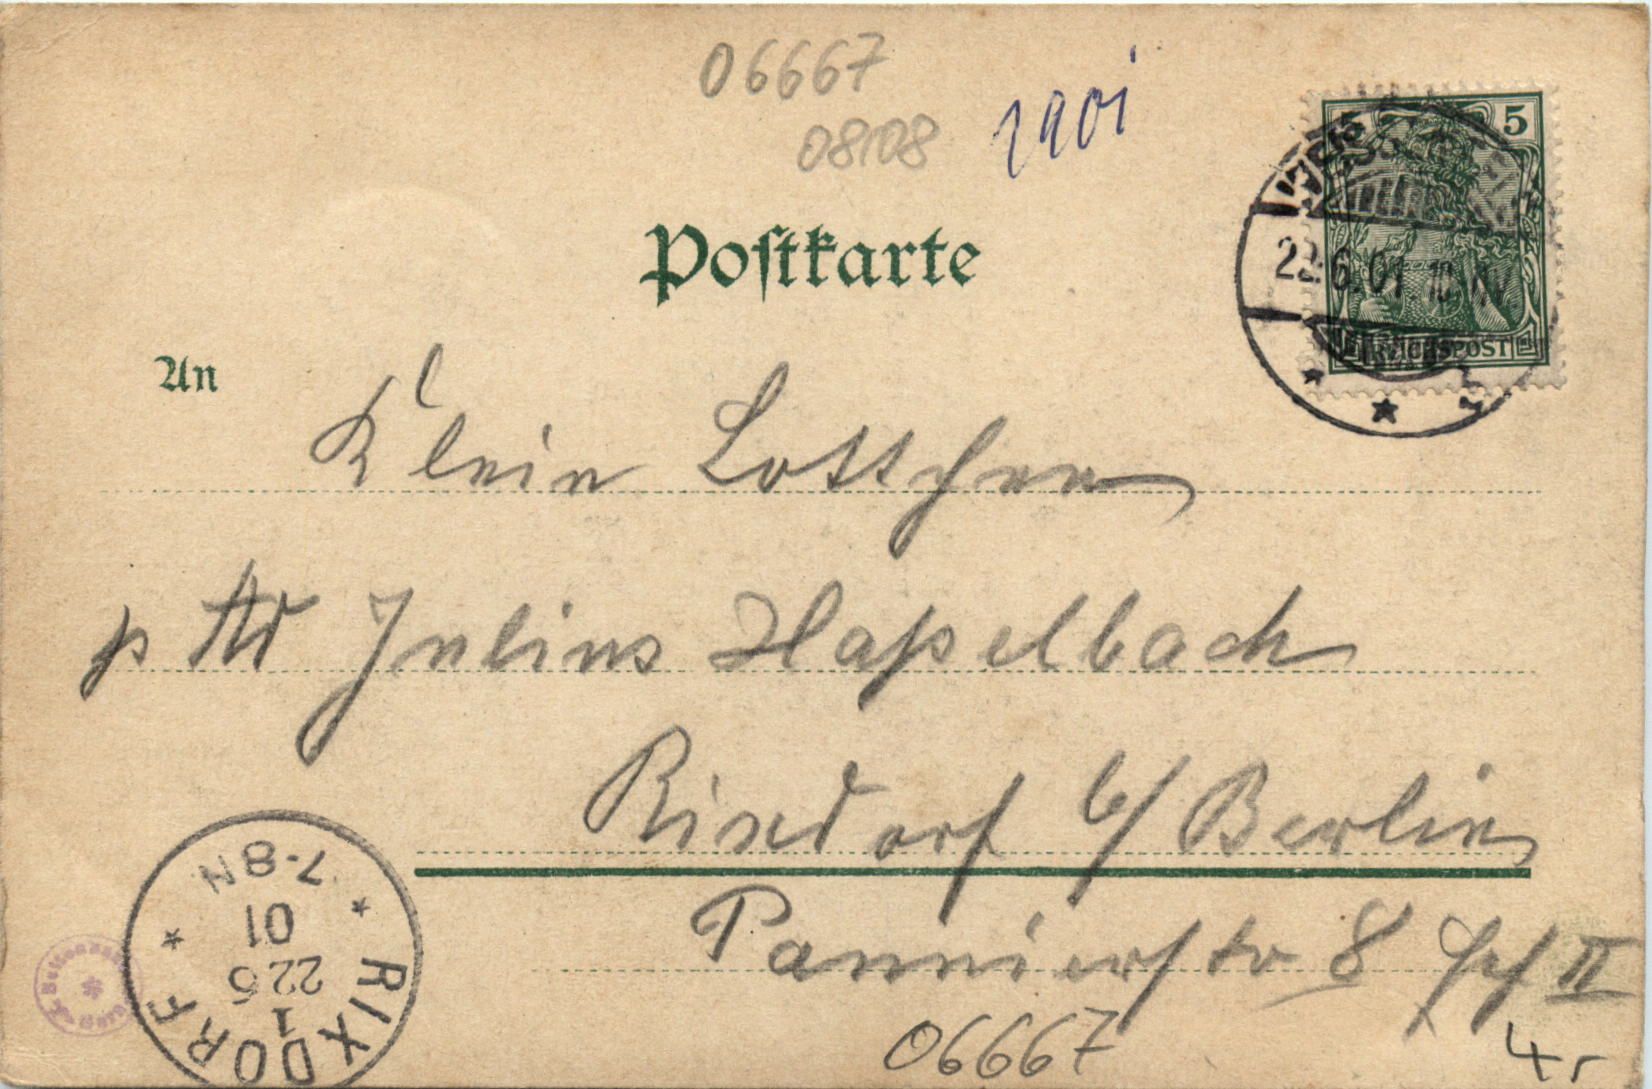 06667
08108
1901
5
22.6.01 10
REICHSPOST
Postkarte
An
Klein Lottchen
p Adr Julius Haßelbach
Rixdorf b/ Berlin
Pannierstr 8
II
RIXDORF
1
22 6
01
7-8N
06667
4,-